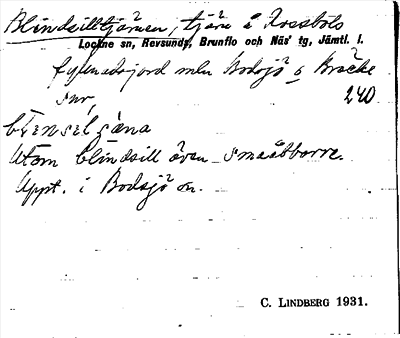 Blindsilltjärnen, tjärn å Rossböls
Lockne sn, Revsunds, Brunflo och Näs' tg, Jämtl. l.
fyllnadsjord mln Bodsjö o Bräcke
snr,
240
Utom blindsill även småabborre.
Uppt. i Bodsjö sn.
C. LINDBERG 1931.